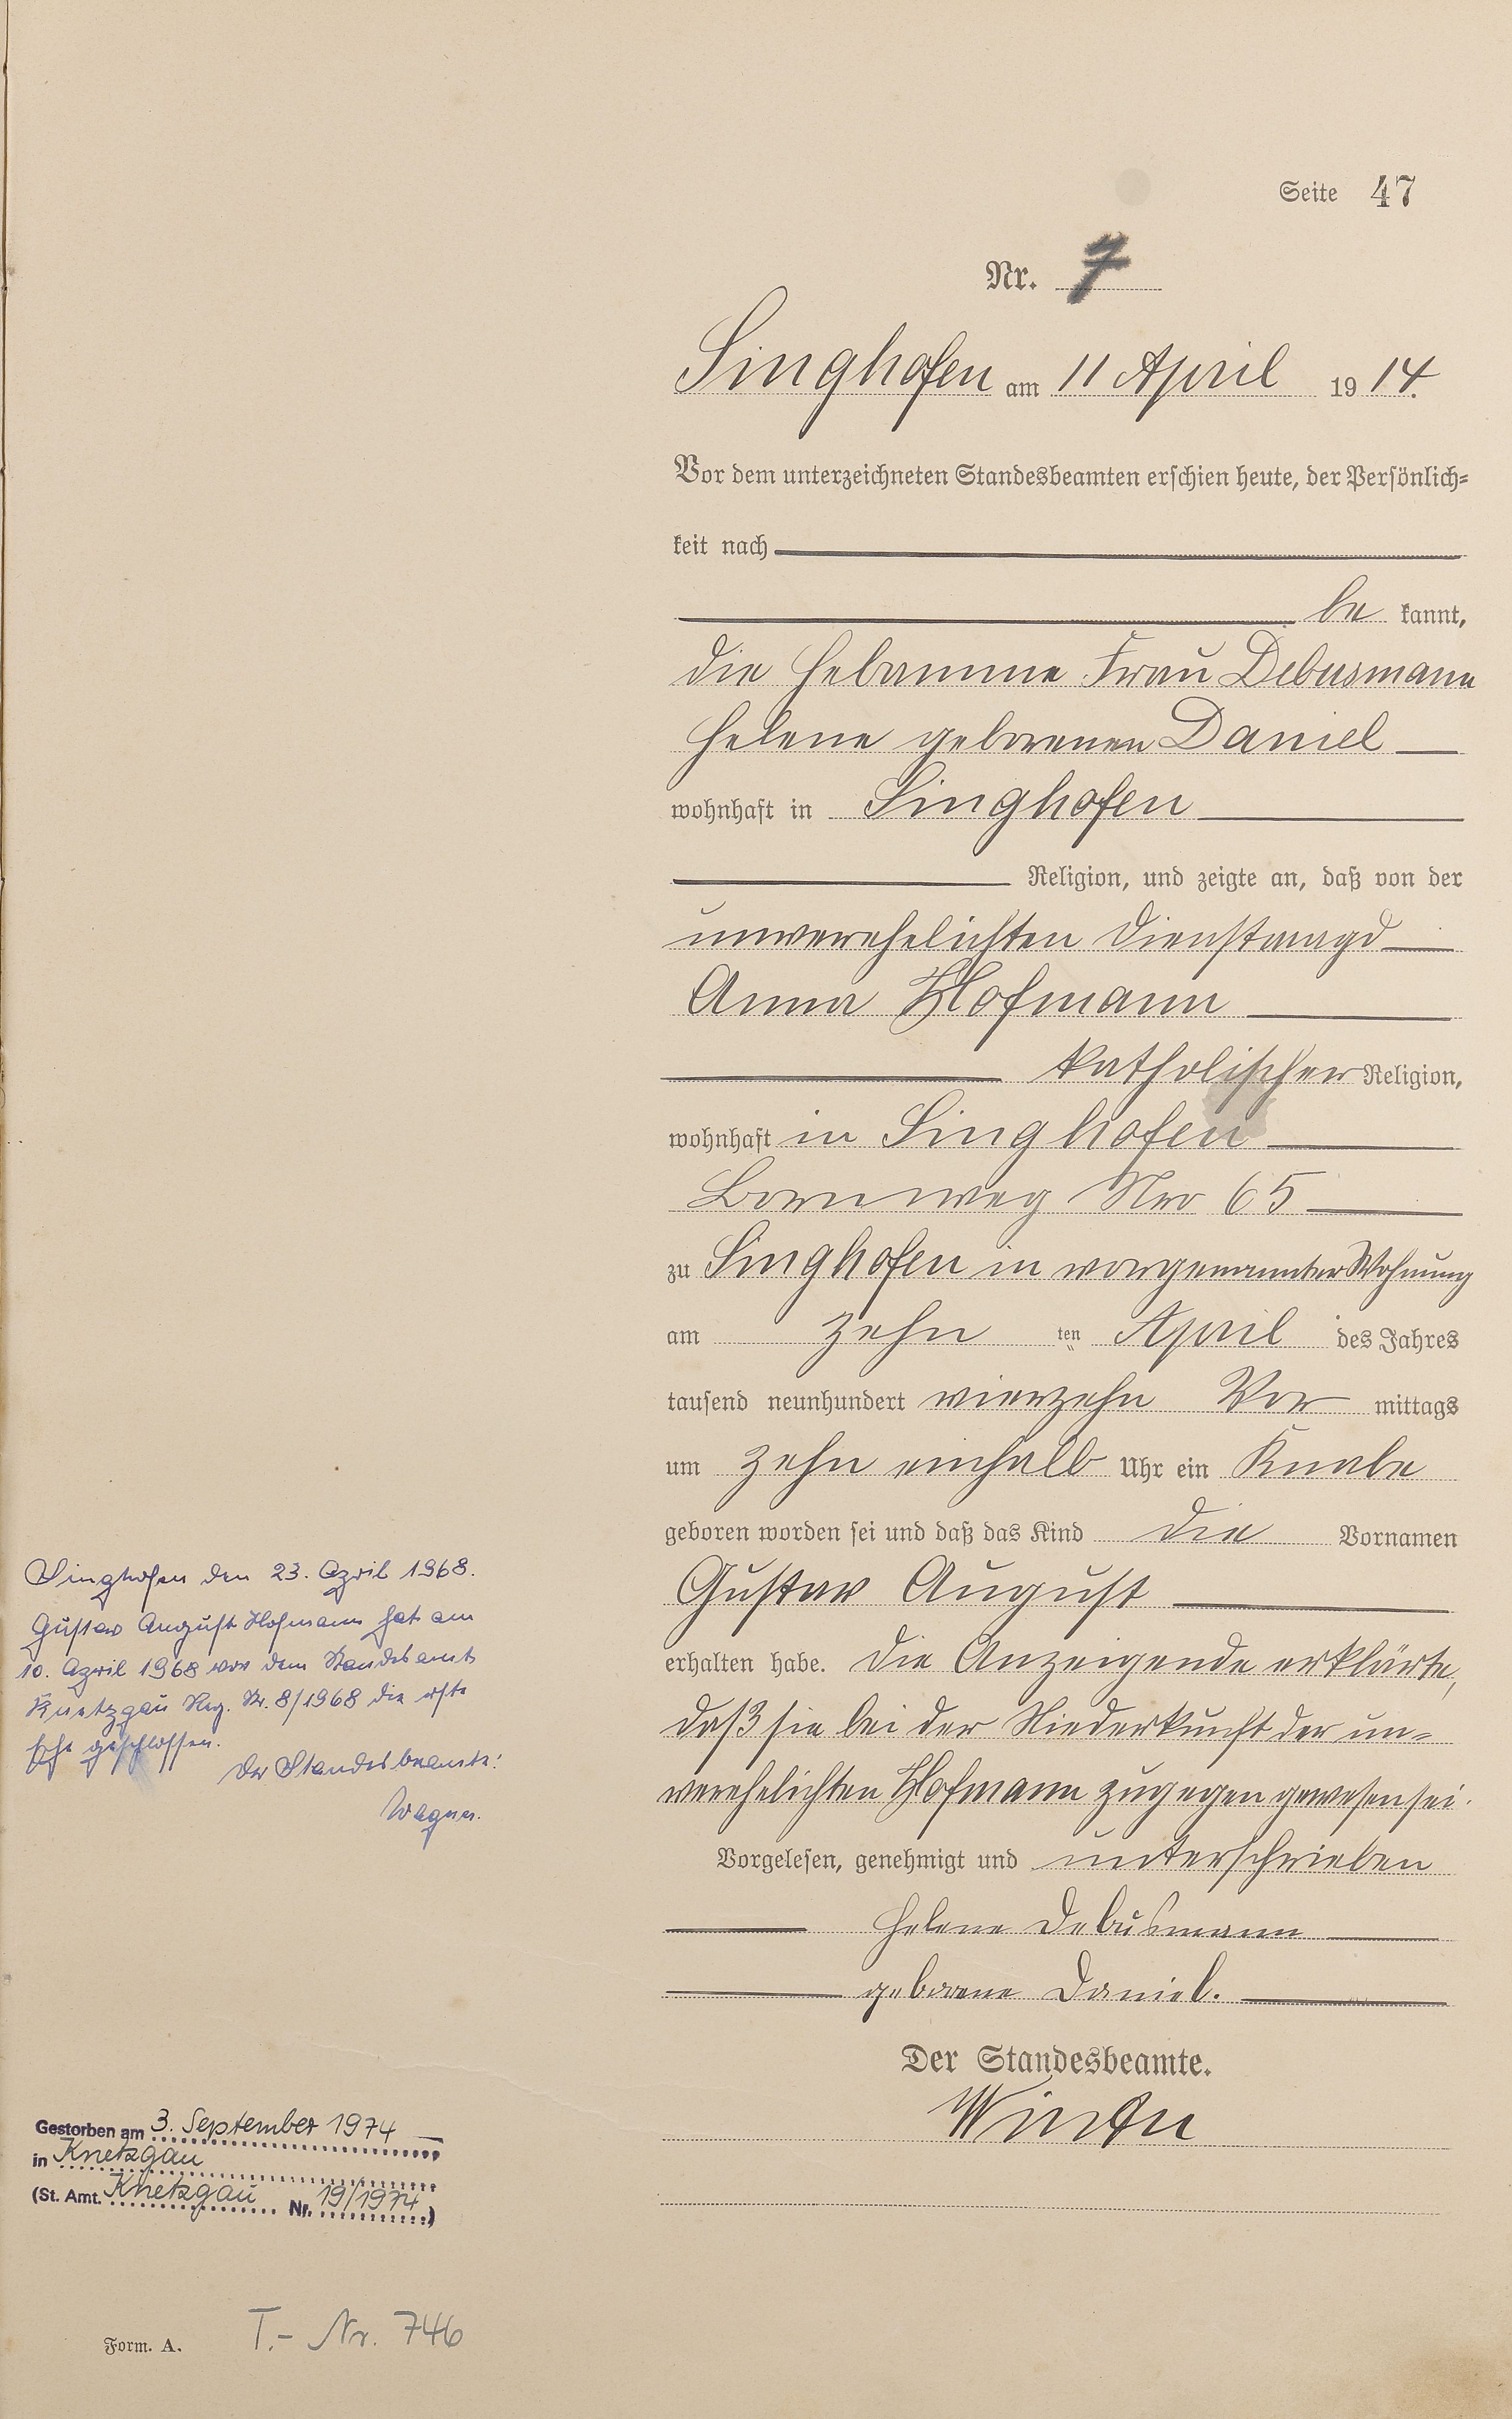 Seite 47
Nr. 7
Singhofen am 11 April 1914.
Vor dem unterzeichneten Standesbeamten erschien heute, der Persönlich=
keit nach
be kannt,
die Hebamme Frau Debusmann
Helene geborenen Daniel
wohnhaft in Singhofen
Religion, und zeigte an, daß von der
unverehelichten Dienstmagd
Anna Hofmann
katholischer Religion,
wohnhaft in Singhofen
Bornweg Nro 65
zu Singhofen in vorgenannter Wohnung
am zehn ten April des Jahres
tausend neunhundert vierzehn Vor mittags
um zehn einhalb Uhr ein Knabe
geboren worden sei und daß das Kind die Vornamen
Gustav August
erhalten habe. Die Anzeigende erklärte,
daß sie bei der Niederkunft der un=
verehelichten Hofmann zugegen gewesen sei.
Vorgelesen, genehmigt und unterschrieben
Helene Debusmann
geborene Daniel.
Der Standesbeamte.
Singhofen den 23. April 1968.
Gustav August Hofmann hat am
10. April 1968 vor dem Standesamt
Knetzgau Reg. Nr. 8/1968 die erste
Ehe geschlossen.
Der Standesbeamte:
Wagner.
Gestorben am 3. September 1974
in Knetzgau
(St. Amt. Knetzgau Nr. 19/1974)
Form. A.
T.- Nr. 746